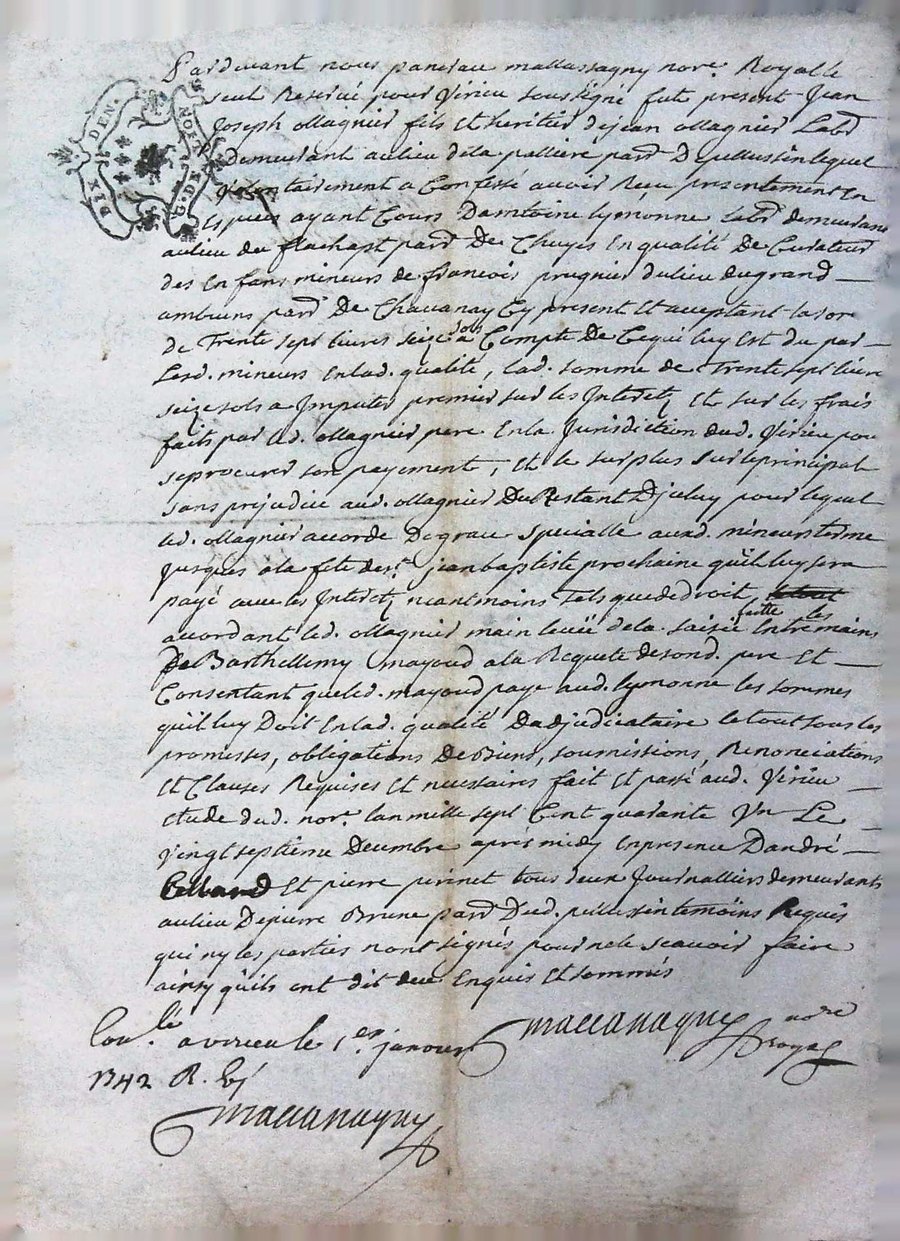 DIX DEN.
G. DE
Pardevant nous pancrau mallassagny nore. Royalle
seul Reservé pour Virieu soussigné fut present Jean
Joseph ollagnier fils et heritier de jean ollagnier Labr
demeurant au lieu de la palliere parr. De pellussin lequel
volontairement a Confessé avoir Reçu presentement en
Especes ayant Cours Dantoine lymonne Labr demeurant
au lieu du flachapt parr. De Chuyes En qualité De Curateur
des Enfans mineurs de francois prugnier du lieu du grand
ambuens parr De Chavanay Cy present Et aceptant la som
de Trente sept livres seize sols a Compte De Ce qui luy Est du par
Lesd. mineurs En lad. qualité, Lad. somme de Trente sept livres
seize sols a Imputer premier sur les Interets Et sur les frais
faits par led. ollagnier pere En la Jurisdiction dud. Virieu pour
se procurer son payement, Et le surplus sur le principal
sans prejudice aud. ollagnier Du Restant Djceluy pour lequel
led. ollagnier accorde De grace specialle auxd. mineurs terme
jusques a la fete de st. jean baptiste prochaine qu'il luy sera
payé avec les Interets neantmoins tels que de droit,
accordant led. ollagnier main levée de la saisie faitte Entre les mains
De Barthellemy mayoud a la Requete de sond. pere Et
Consentant que led. mayoud paye aud. lymonne les sommes
qu'il luy Doit En lad. qualité Dadjudicataire le tout sous les
promesses, obligations De Biens, soumissions, Renonciations
Et Clauses Requises Et necessaires fait Et passé aud. Virieu
etude dud. nore. lan mille sept Cent quarante Un Le
Vingt septieme Decembre apres midy En presence Dandré
Et pierre perinet tous deux Journalliers demeurants
au lieu De pierre Brune parr Dud. pellussin temoins Requis
qui ny les parties nont signés pour ne le scavoir faire
ainsy qu'ils ont dit de ce Enquis Et sommés
nore
royal
Conlé. a virieu le 1er janvier
1742 R.